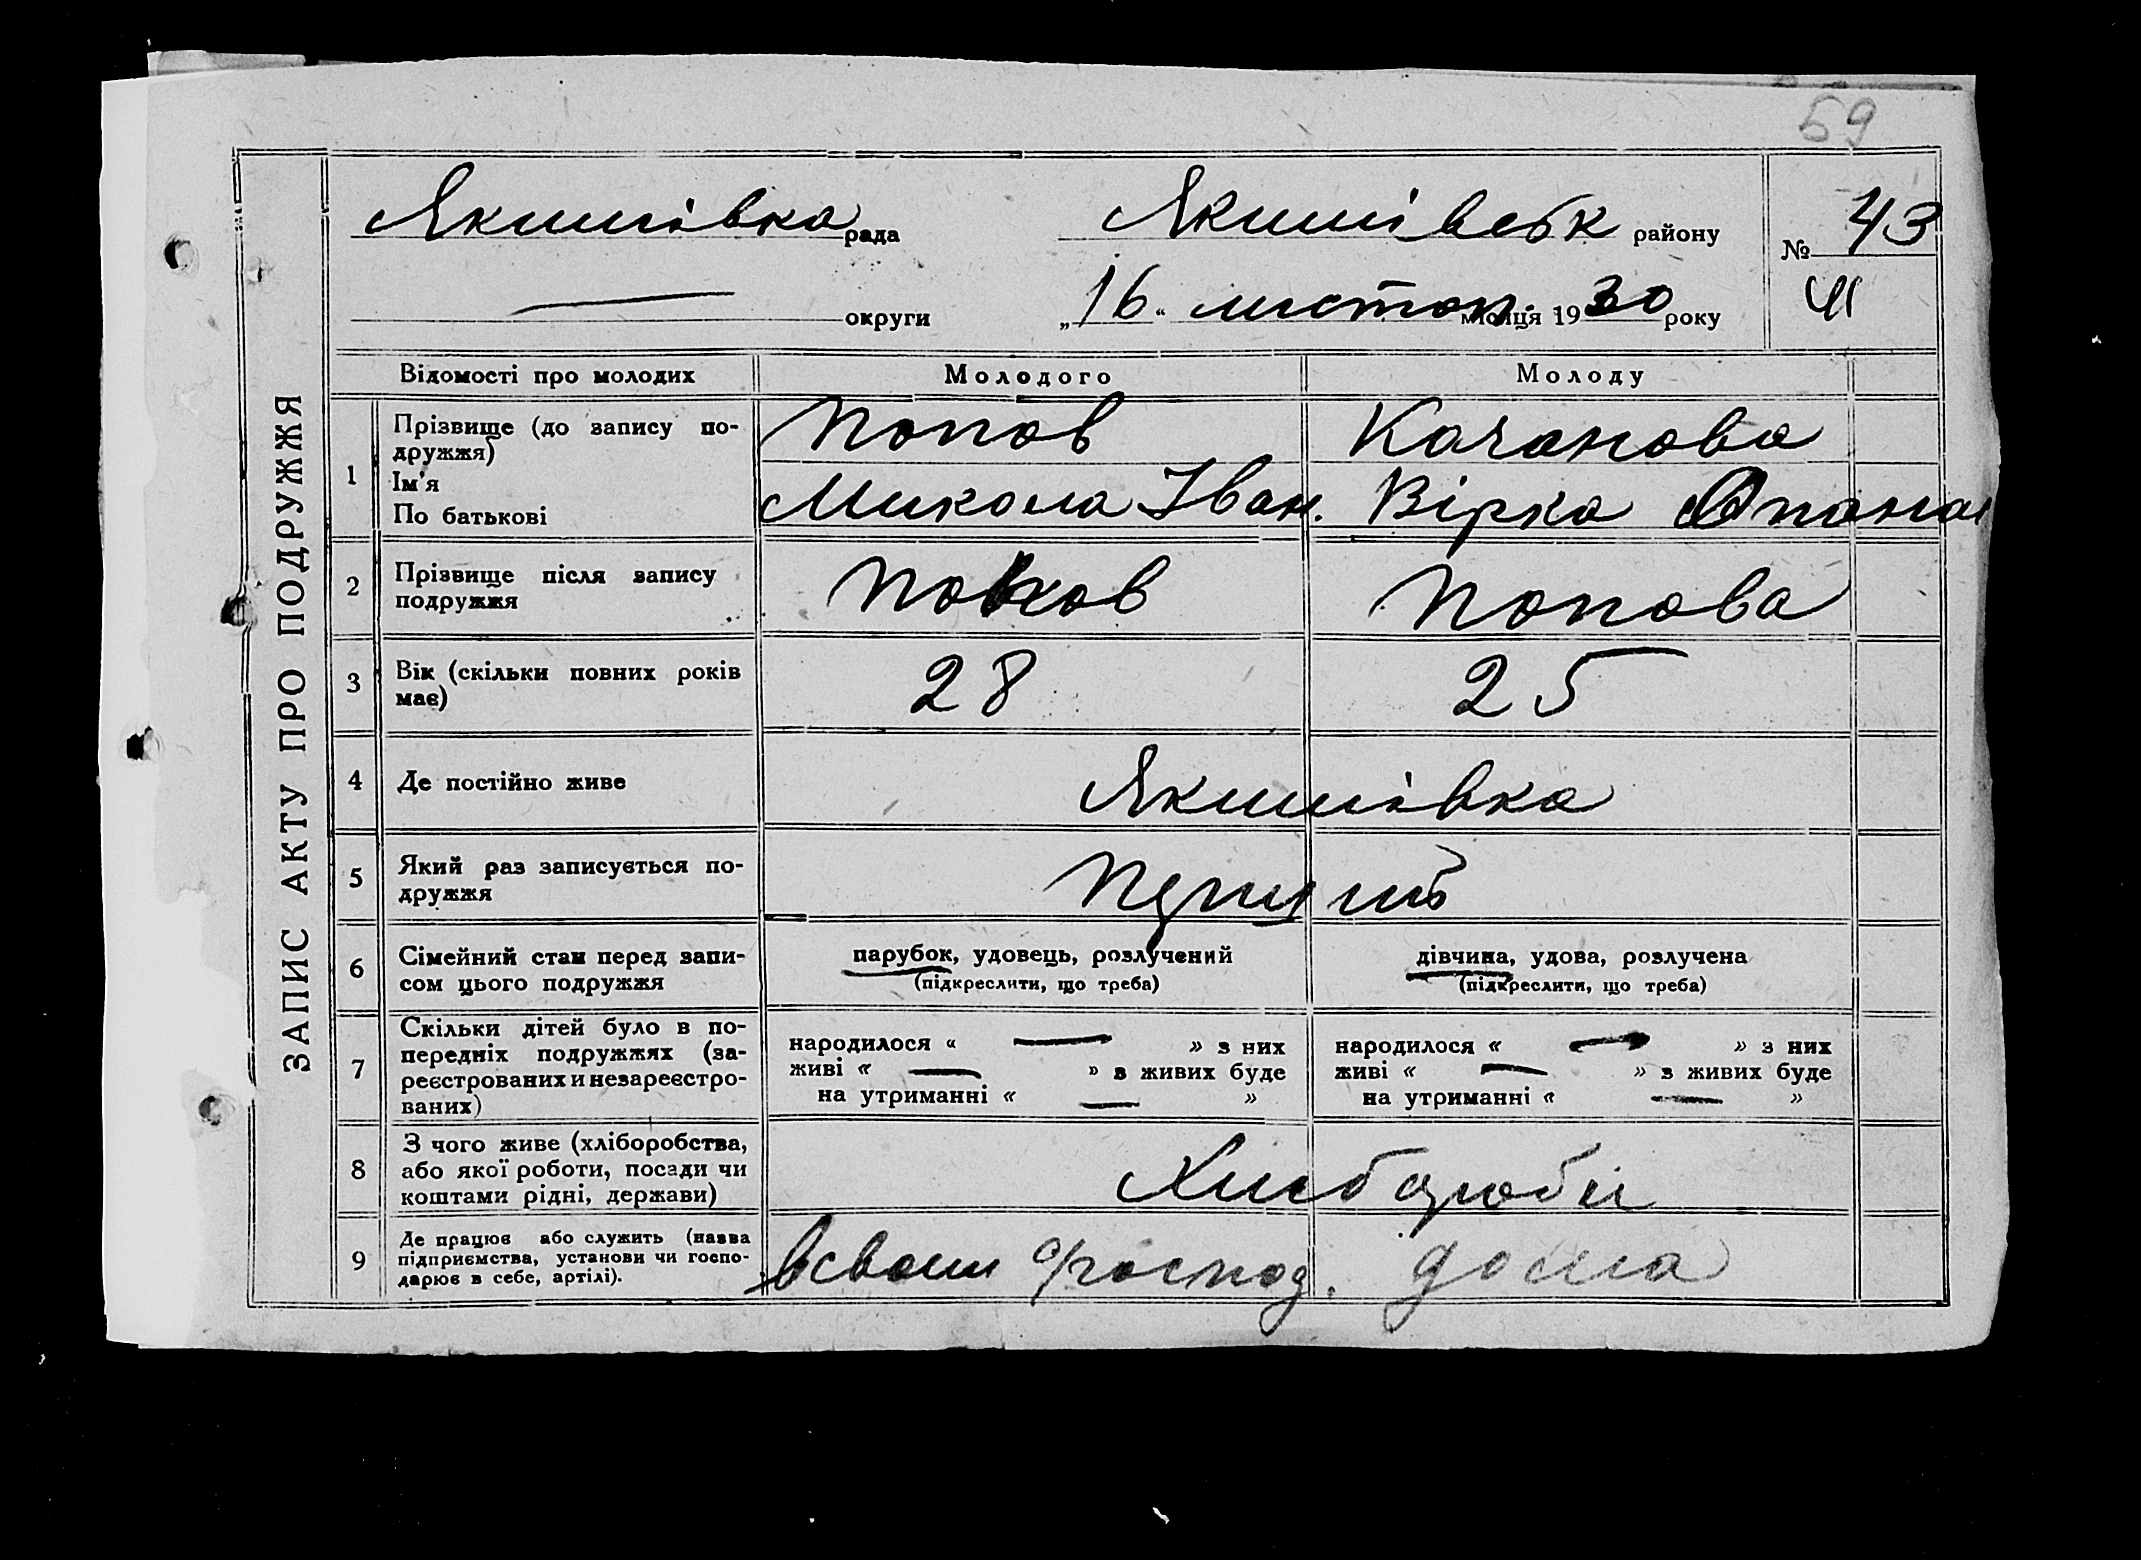 59
Якимівка рада Якимівськ району № 43
округи „16“ листоп. місяця 1930 року ЧІ
ЗАПИС АКТУ ПРО ПОДРУЖЖЯ
Відомості про молодих Молодого Молоду
1 Прізвище (до запису по-
дружжя) Попов Качанова
Ім'я
По батькові Микола Іван. Вірка Опанас
2 Прізвище після запису
подружжя Попов Попова
3 Вік (скільки повних років
має) 28 25
4 Де постійно живе Якимівка
5 Який раз записується по-
дружжя
6 Сімейний стан перед запи-
сом цього подружжя
парубок, удовець, розлучений
(підкреслити, що треба)
дівчина, удова, розлучена
(підкреслити, що треба)
7 Скільки дітей було в по-
передніх подружжях (за-
реєстрованих и незареєстро-
ваних)
народилося « » з них
живі « » з живих буде
на утриманні « »
народилося « » з них
живі « » з живих буде
на утриманні « »
8 З чого живе (хліборобства,
або якої роботи, посади чи
коштами рідні, держави)
9 Де працює або служить (назва
підприємства, установи чи госпо-
дарює в себе, артілі).
в своим господ. дома